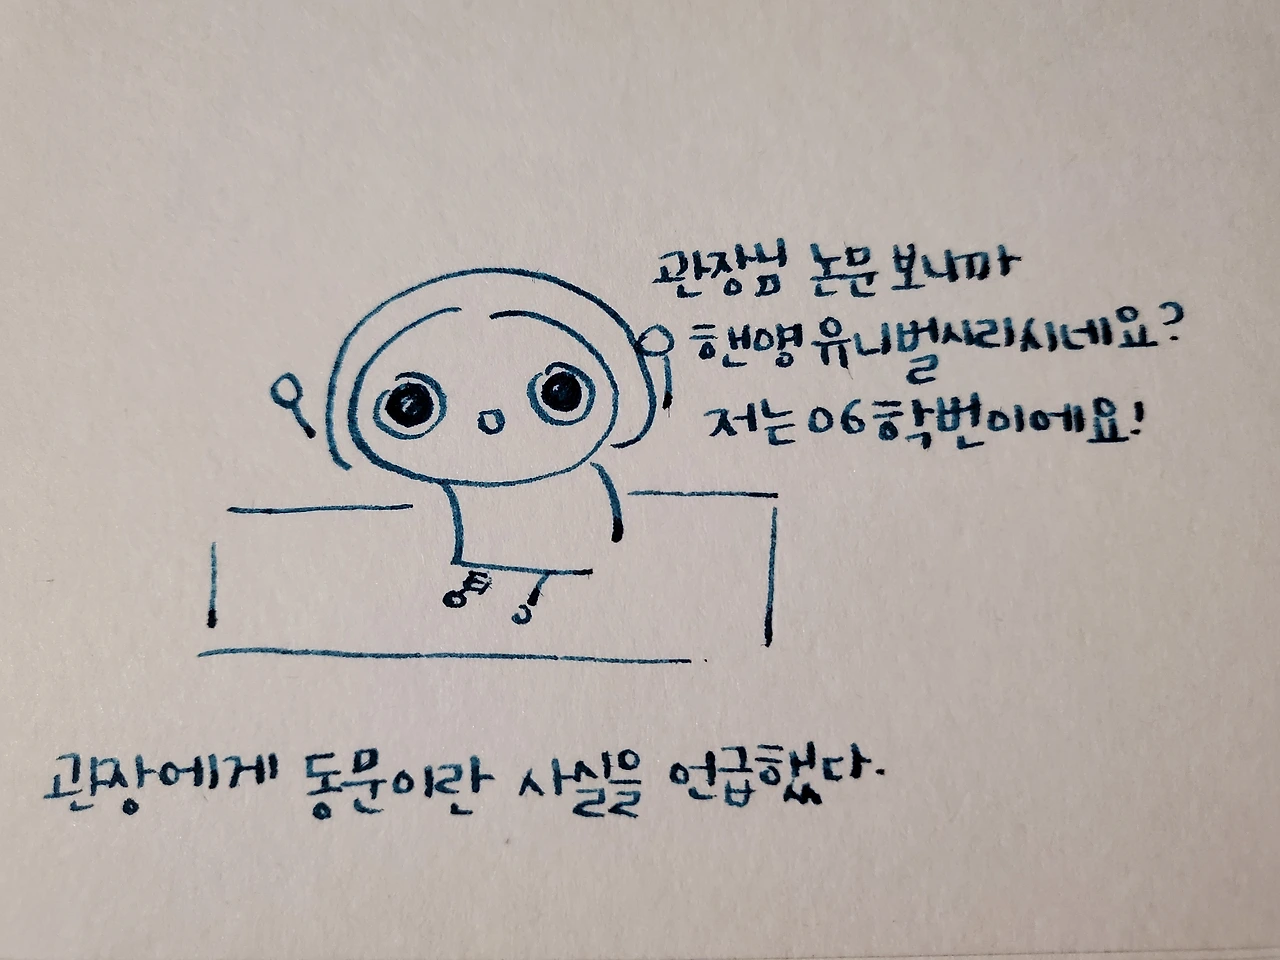 관장님 논문 보니까
핸영 유니벌시리시네요?
저는 06학번이에요!
관장에게 동문이란 사실을 언급했다.